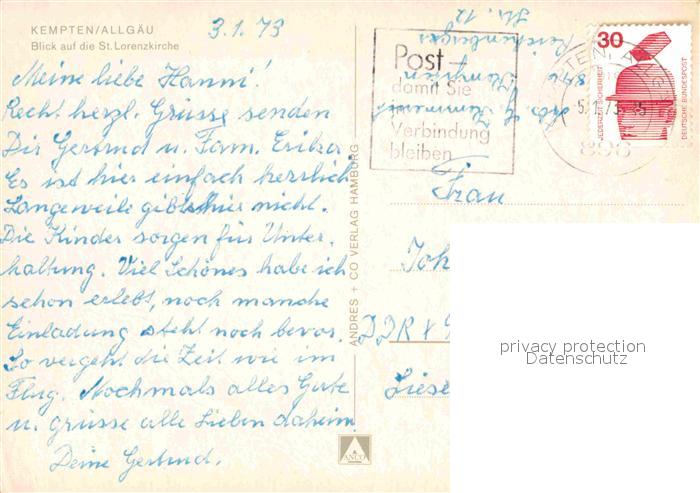 KEMPTEN/ALLGÄU
Blick auf die St. Lorenzkirche
3.1.73
Meine liebe Hanni!
Recht herzl. Grüsse senden
Dir Gertrud u. Fam. Erika.
Es ist hier einfach herrlich
Langeweile gibts hier nicht.
Die Kinder sorgen für Unter.
haltung. Viel Schönes habe ich
schon erlebt, noch manche
Einladung steht noch bevor.
So vergeht die Zeit wie im
Flug. Nochmals alles Gute
u. grüsse alle Lieben daheim
Deine Gertrud.
ANDRES + CO VERLAG HAMBURG
ANCO
Post-
damit Sie
in
Verbindung
bleiben
896
30
JEDERZEIT SICHERHEIT
DEUTSCHE BUNDESPOST
Str. 12
Kempten
Frau
Joh
DDR
Liese
privacy protection
Datenschutz